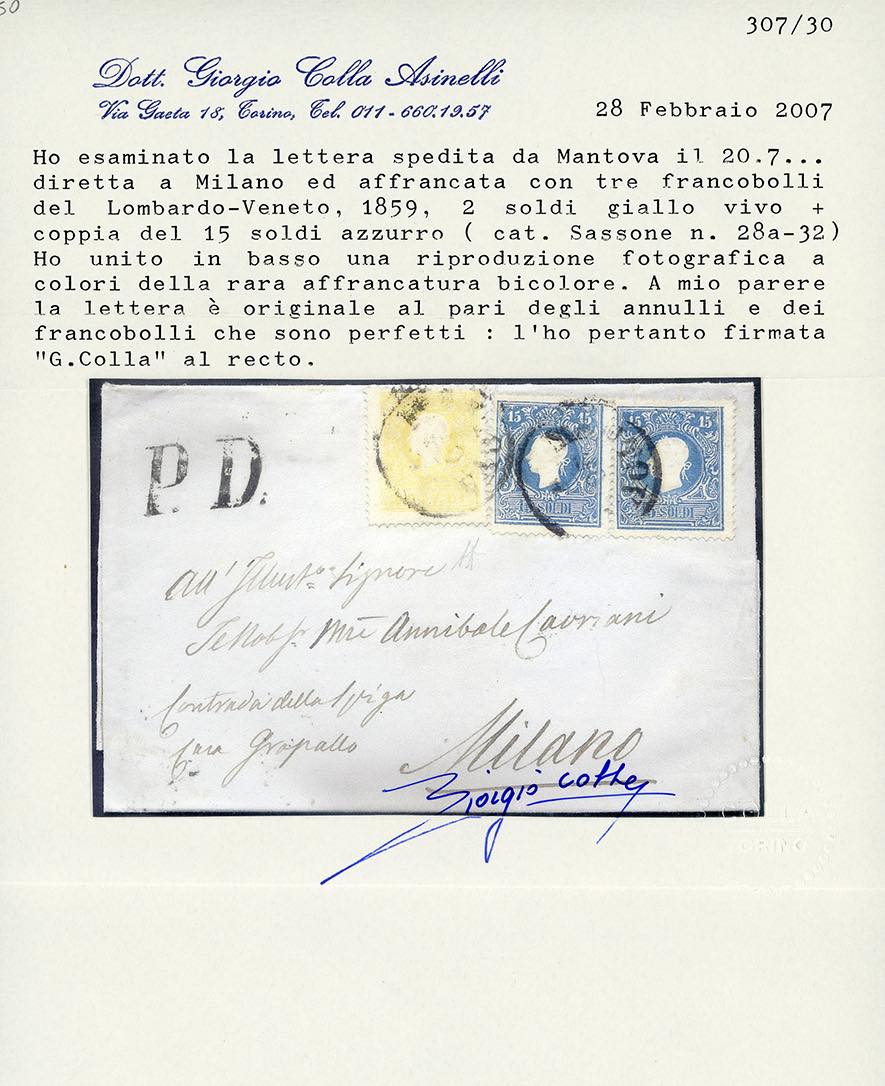 50
307/30
Dott. Giorgio Colla Asinelli
Via Gaeta 18, Torino, Tel. 011-660.19.57
28 Febbraio 2007
Ho esaminato la lettera spedita da Mantova il 20.7...
diretta a Milano ed affrancata con tre francobolli
del Lombardo-Veneto, 1859, 2 soldi giallo vivo +
coppia del 15 soldi azzurro ( cat. Sassone n. 28a-32)
Ho unito in basso una riproduzione fotografica a
colori della rara affrancatura bicolore. A mio parere
la lettera è originale al pari degli annulli e dei
francobolli che sono perfetti : l'ho pertanto firmata
"G.Colla" al recto.
P. D.
15 15 15 15
15 SOLDI 15 SOLDI
All' Illust. Signore
Annibale Cavriani
Contrada della Spiga
Casa Gropallo
Milano
Giorgio Colla
TORINO